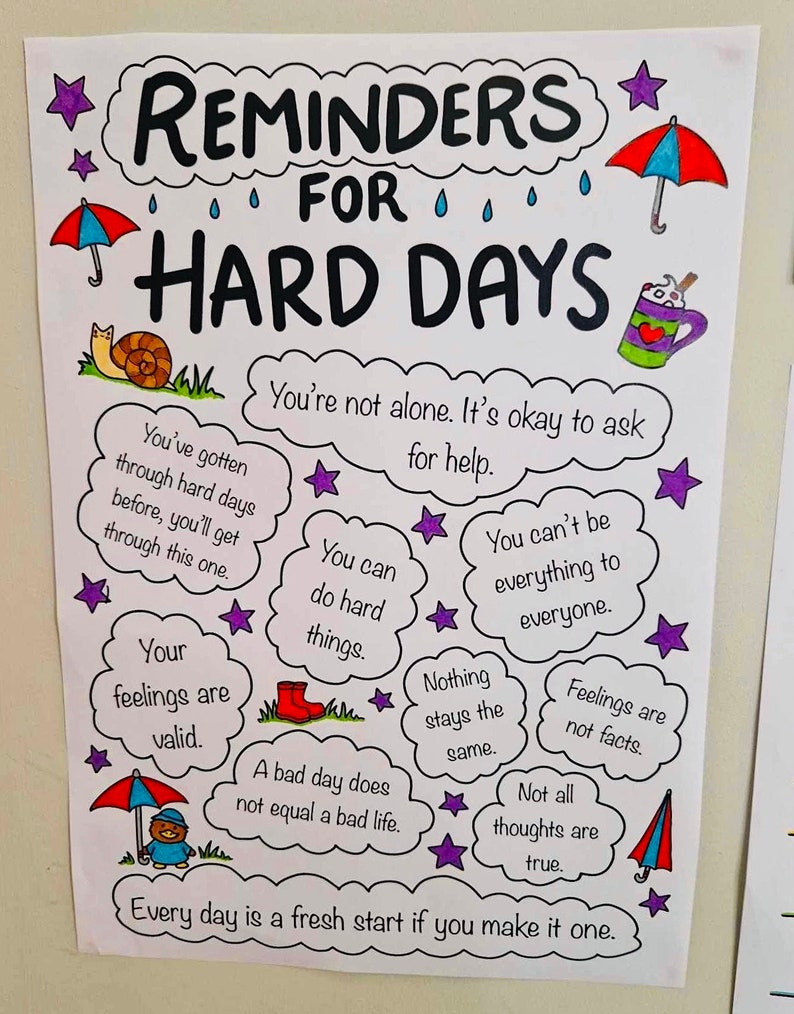 REMINDERS
FOR
HARD DAYS
You're not alone. It's okay to ask
for help.
You've gotten
through hard days
before, you'll get
through this one.
You can
do hard
things.
You can't be
everything to
everyone.
Your
feelings are
valid.
Nothing
stays the
same.
Feelings are
not facts.
A bad day does
not equal a bad life.
Not all
thoughts are
true.
Every day is a fresh start if you make it one.